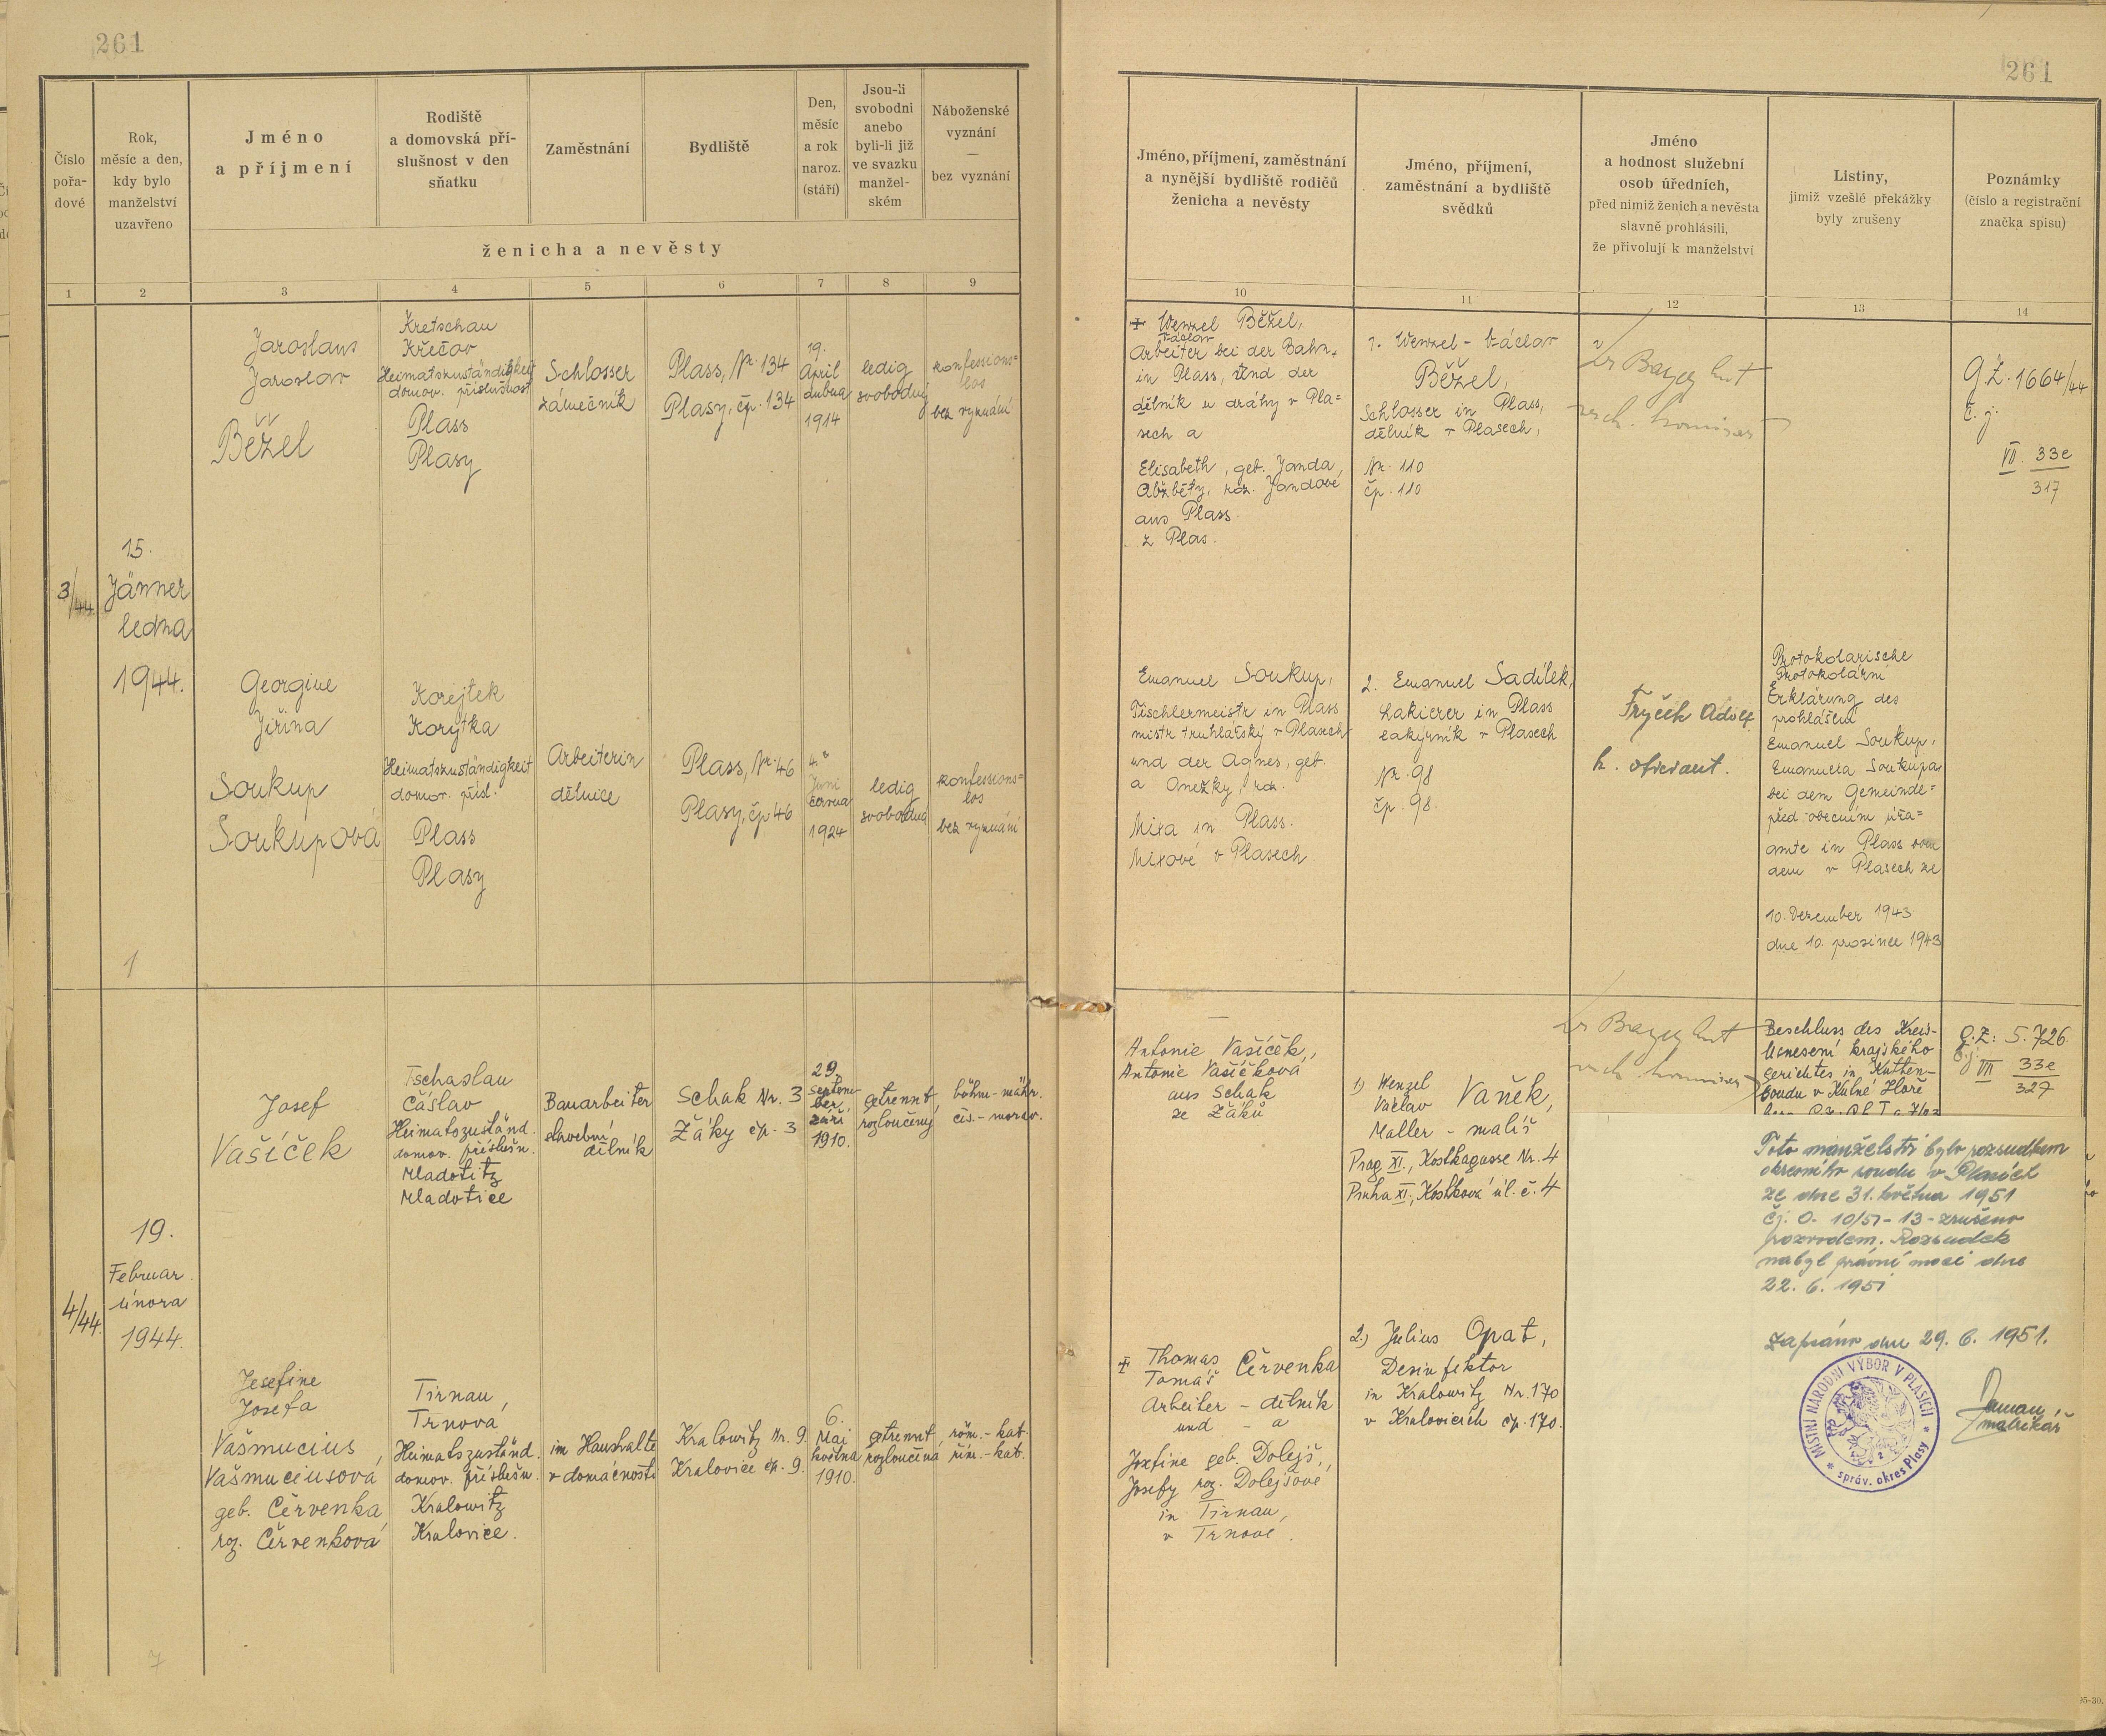 261
261
Číslo
pořa-
dové
Rok,
měsíc a den,
kdy bylo
manželství
uzavřeno
Jméno
a příjmení
Rodiště
a domovská pří-
slušnost v den
sňatku
Zaměstnání
Bydliště
Den,
měsíc
a rok
naroz.
(stáří)
Jsou-li
svobodni
anebo
byli-li již
ve svazku
manžel-
ském
Náboženské
vyznání
—
bez vyznání
ženicha a nevěsty
1 2 3 4 5 6 7 8 9
Jméno, příjmení, zaměstnání
a nynější bydliště rodičů
ženicha a nevěsty
Jméno, příjmení,
zaměstnání a bydliště
svědků
Jméno
a hodnost služební
osob úředních,
před nimiž ženich a nevěsta
slavně prohlásili,
že přivolují k manželství
Listiny,
jimiž vzešlé překážky
byly zrušeny
Poznámky
(číslo a registrační
značka spisu)
10 11 12 13 14
3/44
15.
Jänner
ledna
1944.
Jaroslaus
Jaroslav
Běžel
Kretschau
Křečov
Heimatszuständigkeit
domov. příslušnost
Plass
Plasy
Schlosser
zámečník
Plass, Nr. 134
Plasy, čp. 134
19.
April
dubna
1914
ledig
svobodný
konfessions=
los
bez vyznání
+ Wenzel Běžel,
Václav
Arbeiter bei der Bahn
in Plass, und der
dělník u dráhy v Pla=
sech a
Elisabeth, geb. Janda,
Alžběty, roz. Jandové
aus Plass.
z Plas.
1. Wenzel - Václav
Běžel,
Schlosser in Plass,
dělník v Plasech,
Nr. 110
čp. 110
G.Z. 1664/44
č. j.
VII. 33e
317
Georgine
Jiřina
Soukup
Soukupová
Korejtek
Korýtka
Heimatszuständigkeit
domov. přísl.
Plass
Plasy
Arbeiterin
dělnice
Plass, Nr. 46
Plasy, čp 46
4.
Juni
června
1924
ledig
svobodná
konfessions=
los
bez vyznání
Emanuel Soukup,
Tischlermeistr in Plass
mistr truhlářský v Plasech
und der Agnes, geb.
a Anežky, roz.
Mixa in Plass.
Mixové v Plasech.
2. Emanuel Sadílek,
Lakierer in Plass
lakýrník v Plasech
Nr. 98
čp. 98.
Fryček Adolf
k. oficiant.
Protokolarische
Protokolární
Erklärung des
prohlášení
Emanuel Soukup,
Emanuela Soukupa
bei dem Gemeinde=
před obecním úřa=
amte in Plass vom
dem v Plasech ze
10. Dezember 1943
dne 10. prosince 1943
1
4/44.
19.
Februar
února
1944.
Josef
Vašíček
Tschaslau
Čáslav
Heimatszuständ.
domov. příslušn.
Mladotitz
Mladotice
Bauarbeiter
stavební
dělník
Schak Nr. 3
Žáky čp. 3
29.
Septem-
ber
září
1910.
getrennt,
rozloučený
böhm.-mähr.
čes.-morav.
Antonie Vašíček,
Antonie Vašíčková
aus Schak
ze Žáků
1) Wenzel
Václav Vaněk,
Maller - malíř
Prag XI., Kostkagasse Nr. 4
Praha XI., Kostkova úl. č. 4
Beschluss des Kreis-
Usnesení krajského
Gerichtes in Kutten-
soudu v Kutné Hoře
G.Z: 5.726.
č.j.
VIII 33e
327
Toto manželství bylo rozsudkem
okresního soudu v Plasích
ze dne 31. května 1951
čj. O- 10/51 - 13 - zrušeno
rozvodem. Rozsudek
nabyl právní moci dne
22. 6. 1951
Zapsáno dne 29. 6. 1951.
matrikář
MÍSTNÍ NÁRODNÍ VÝBOR V PLASÍCH
* správ. okres Plasy *
Josefine
Josefa
Vašmucius,
Vašmuciusová
geb. Červenka,
roz. Červenková
Tirnau,
Trnová
Heimatszuständ.
domov. příslušn.
Kralowitz
Kralovice.
im Haushalte
v domácnosti
Kralowitz Nr. 9.
Kralovice čp. 9.
6.
Mai
května
1910.
getrennt,
rozloučená
röm.-kat.
řím.-kat.
+ Thomas
Tomáš Červenka
Arbeiter - dělník
und - a
Josefine geb. Dolejš,
Josefy roz. Dolejšové
in Tirnau,
v Trnové.
2.) Julius Opat,
Desinfektor
in Kralowitz Nr. 170
v Kralovicích čp. 170.
7